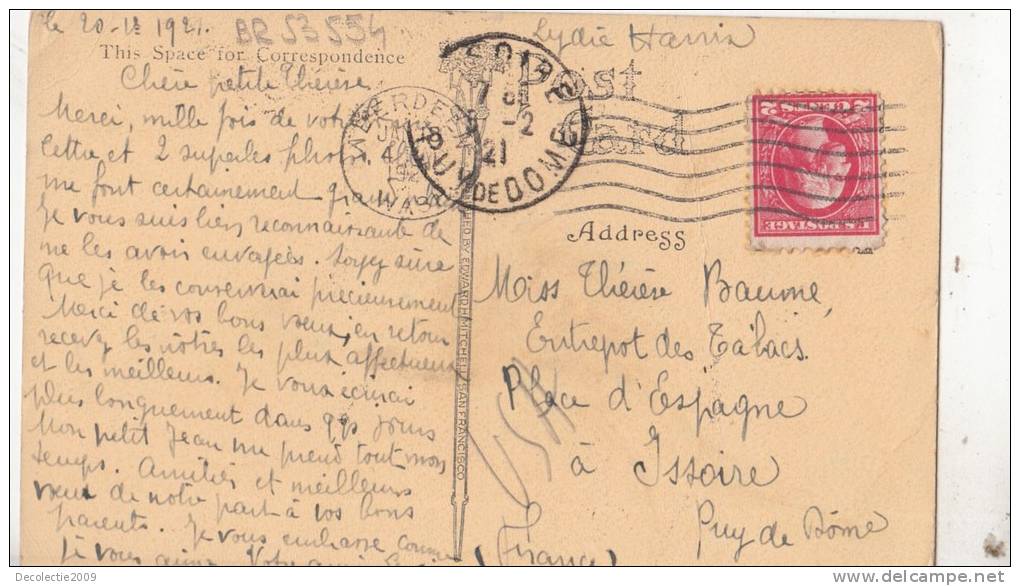 le 20-1 1921.
BR 53 554
Lydie Harris
This Space for Correspondence
Post
Card
Chère petite Thérèse.
Merci, mille fois de votre
lettre et 2 superbes photos.
me font certainement grand
Je vous suis reconnaissante de
me les avoir envoyées. Soyez sûre
que je les conserverai précieusement
Merci de vos bons vœux, en retour
recevez les nôtres les plus affectueux
et les meilleurs. Je vous écrirai
plus longuement dans qqs jours
Mon petit Jean me prend tout mon
temps. Amitiés et meilleurs
vœux de notre part à vos bons
parents. Je vous embrasse comme
je vous aime. Votre amie
ISSOIRE
21
PUY DE DOME
2 CENTS 2
U.S. POSTAGE
Address
EDWARD H. MITCHELL, SAN FRANCISCO
Miss Thérèse Baume,
Entrepot des Tabacs.
Place d'Espagne
à Issoire
Puy de Dôme
(France)
USA
Decolectie2009
delcampe.net